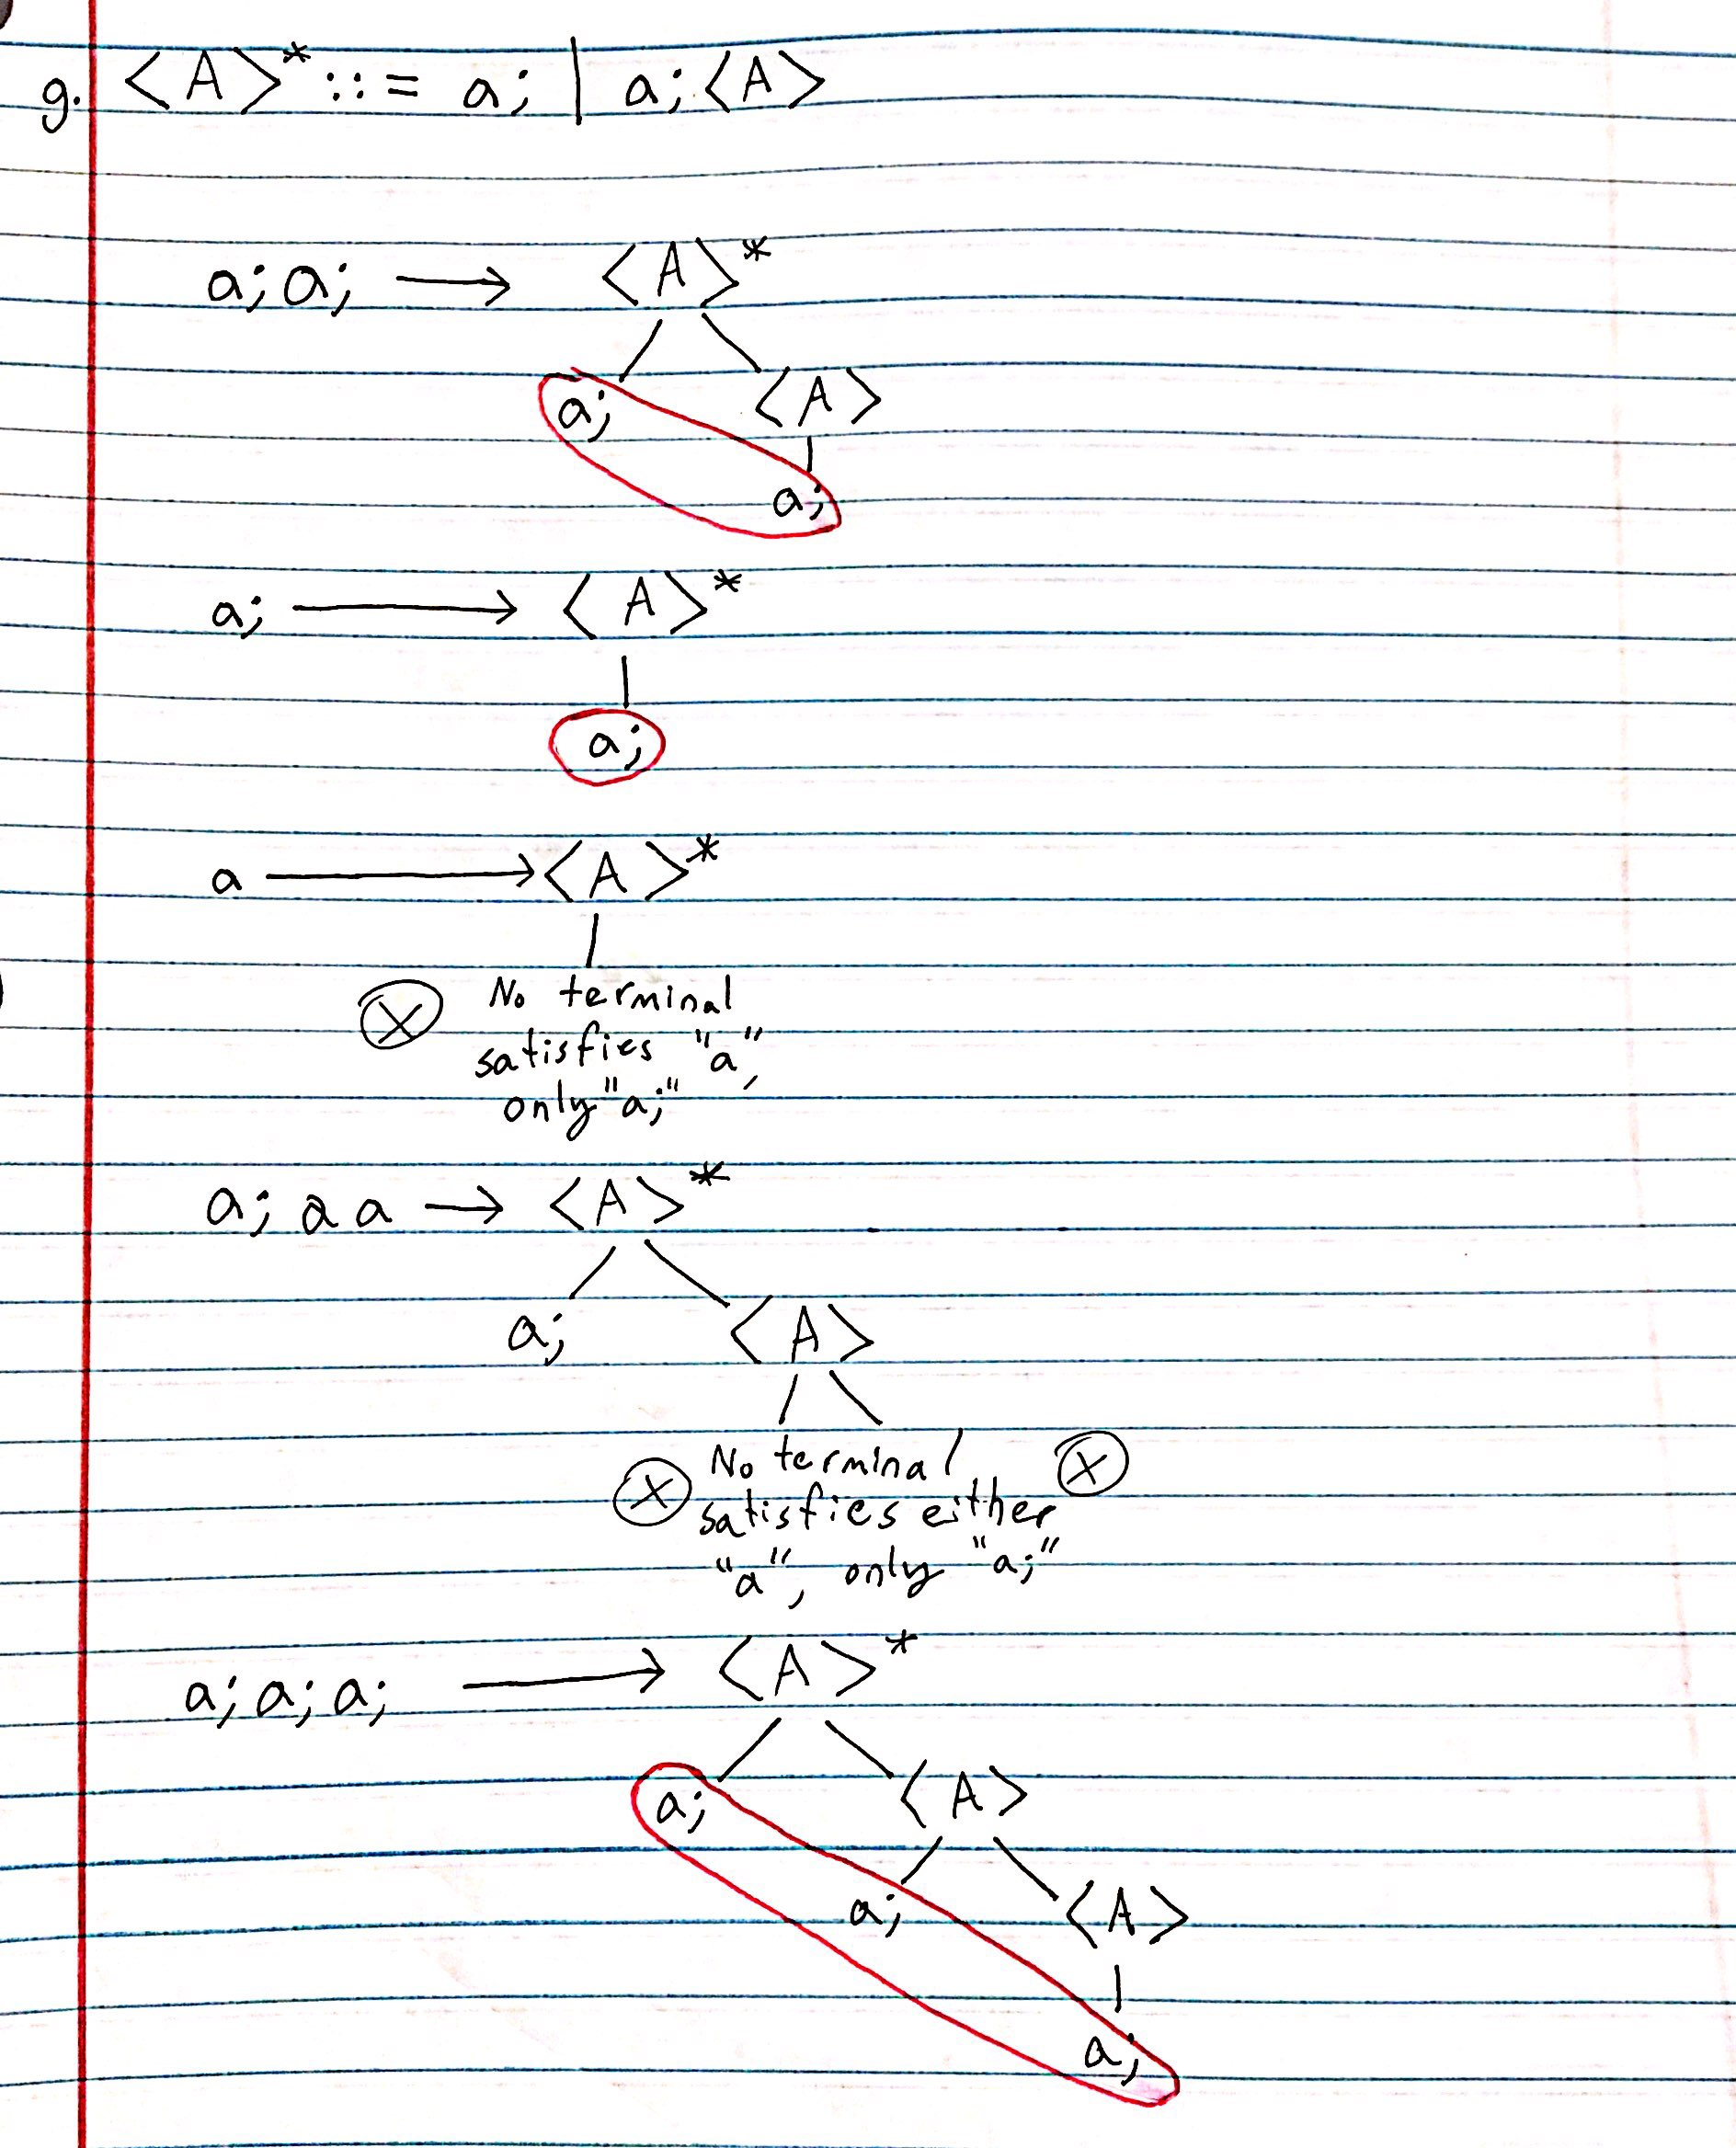 g. <A>* ::= a; | a;<A>
a;a; → <A>*
a; <A>
a;
a; → <A>*
a;
a → <A>*
X No terminal
satisfies "a",
only "a;"
a; a a → <A>*
a; <A>
X No terminal X
satisfies either
"a", only "a;"
a; a; a; → <A>*
a; <A>
a; <A>
a;